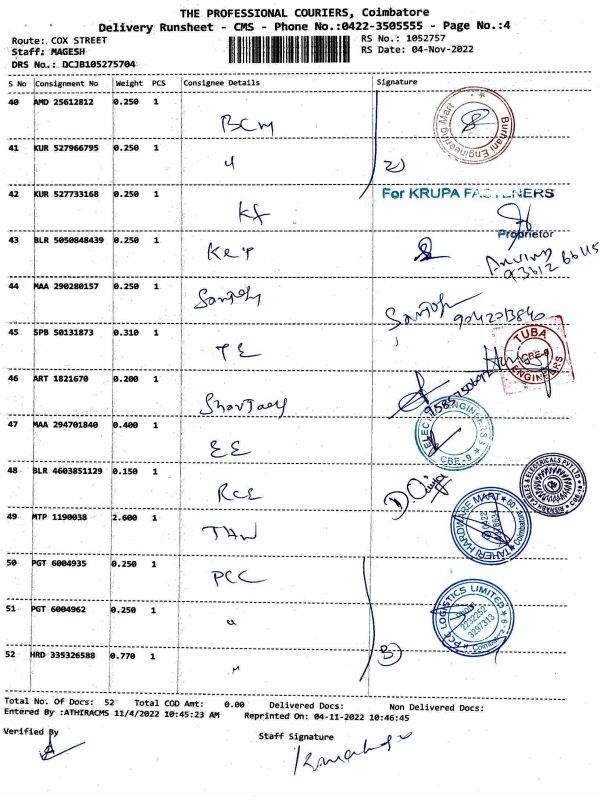 THE PROFESSIONAL COURIERS, Coimbatore
Delivery Runsheet - CMS - Phone No.:0422-3505555 - Page No.:4
Route: COX STREET
RS No.: 1052757
Staff: MAGESH
RS Date: 04-Nov-2022
DRS No.: DCJB105275704
S No Consignment No Weight PCS Consignee Details Signature
40 AMD 25612812 0.250 1 BCM Burhani Engineering Mart
41 KUR 527966795 0.250 1 " 2)
42 KUR 527733168 0.250 1 KF For KRUPA FASTENERS
Proprietor
43 BLR 5050848439 0.250 1
44 MAA 290280157 0.250 1 Santosh Santosh
45 SPB 50131873 0.310 1 TE TUBA ENGINEERS CBE-9
46 ART 1821670 0.200 1
47 MAA 294701840 0.400 1 EE CBE-9
48 BLR 4603851129 0.150 1 RCE
49 MTP 1190038 2.600 1 THW TAHERI HARDWARE MART
50 PGT 6004935 0.250 1 PCC
51 PGT 6004962 0.250 1 " LOGISTICS LIMITED 2232252 3297313
52 HRD 335326588 0.770 1 " 3)
Total No. Of Docs: 52 Total COD Amt: 0.00 Delivered Docs: Non Delivered Docs:
Entered By :ATHIRACMS 11/4/2022 10:45:23 AM Reprinted On: 04-11-2022 10:46:45
Verified By
Staff Signature